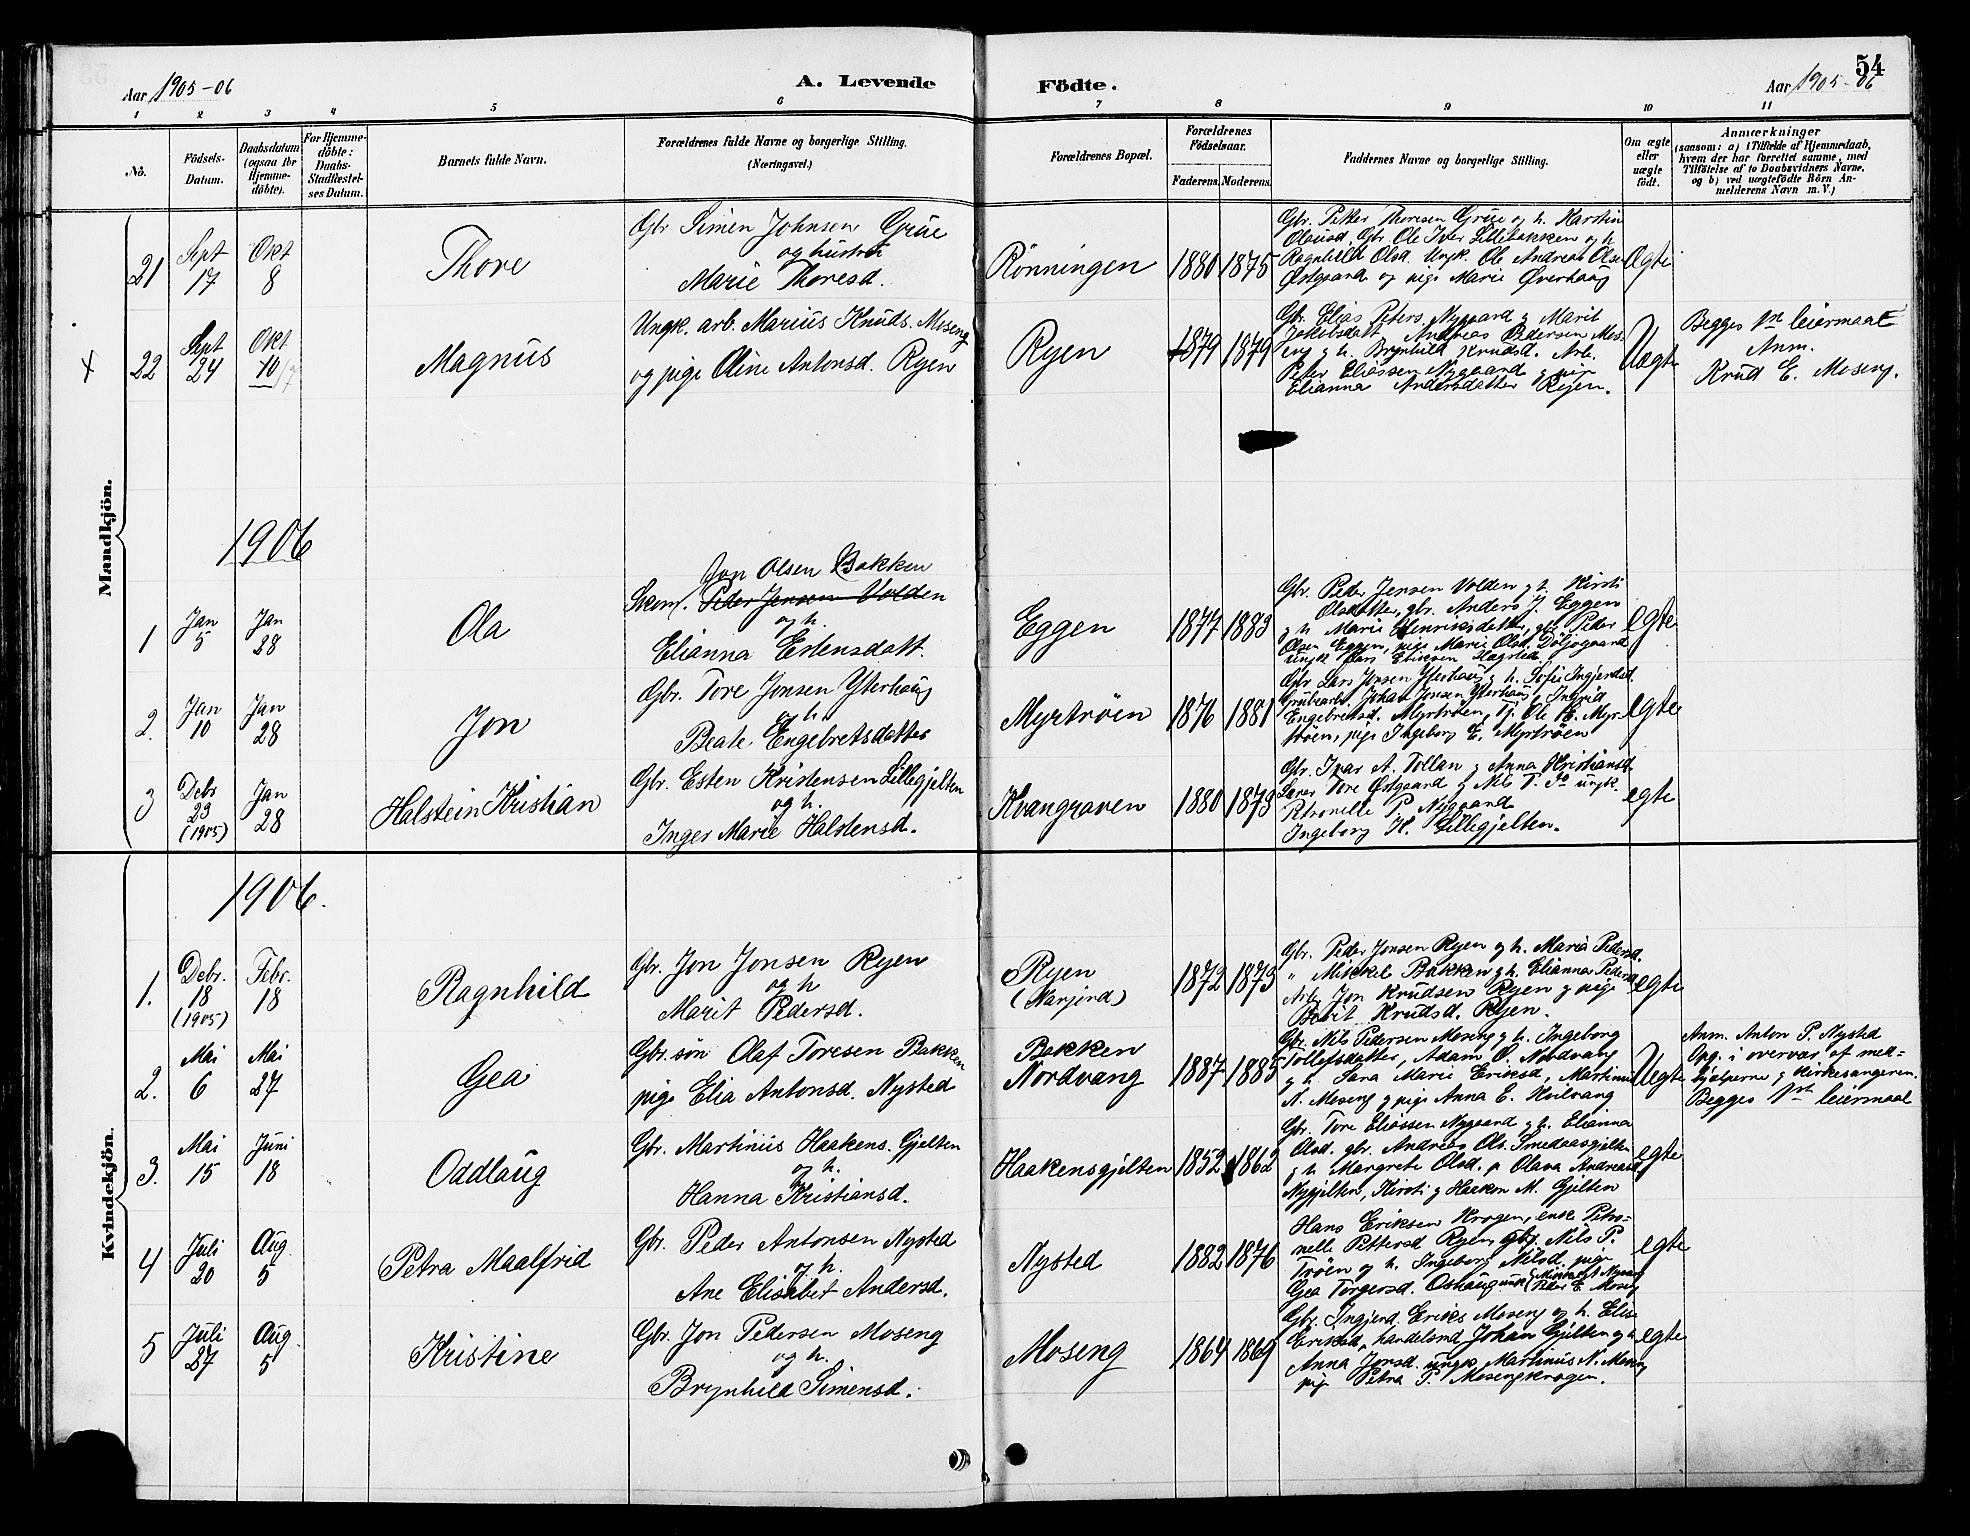 54
Aar 1905-06
A. Levende
Födte.
Aar 1905-06
1 2 3 4 5 6 7 8 9 10 11
No.
Födsels-
Datum.
Daabsdatum
(ogsaa for
Hjemme-
döbte).
For Hjemme-
döbte:
Daabs-
Stadfæstel-
ses Datum.
Barnets fulde Navn.
Forældrenes fulde Navne og borgerlige Stilling.
(Næringsvei.)
Forældrenes Bopæl.
Forældrenes
Födselsaar.
Faderens.
Moderens.
Faddernes Navne og borgerlige Stilling.
Om ægte
eller
uægte
født.
Anmærkninger
(saasom: a) i Tilfælde af Hjemmedaab,
hvem der har forrettet samme, med
Tilføielse af to Daabsvidners Navne,
og b) ved uægtefödte Börn An-
melderens Navn m. V.)
Mandkjön.
21
Sept
17
Okt
8
Thore
Gbr Simen Johnsen Grue
og hustru
Marie Thoresd.
Rönningen
1880
1875
Gbr. Petter Thoresen Grue og h. Karstin
Olausd. Gbr. Ole Iver Lillebakken og h
Ragnhild Olsd. Ungk. Ole Andreas Olsen
Østgaard og pige Marie Øverhaug
Ægte
22
Sept
24
Okt
10
Magnus
Ungk. arb. Marius Knuds. Moseng
og pige Oline Antonsd. Ryen
Ryen
1879
1879
Gbr. Elias Peters. Nygaard g Marit
Jakobsdatt Andreas Pedersen Mos-
eng g h. Brynhild Knudsd. Arb.
Peter Eliassen Nygaard g pige
Elianna Andersdatter Ryen.
Uægte
Begges 1ste leiermaal
Anm.
Knud E. Moseng.
1906
1
Jan
5
Jan
28
Ola
Jon Olsen Bakken
Skom. Peder Jensen Volden
og h.
Elianna Estensdatt.
Eggen
1877
1883
Gbr. Peder Jensen Volden g h. Kirsti
Olsdatter, gbr. Anders J. Eggen
g h Marie Henriksdatter, gbr. Peder
Olsen Eggen, pige Marie Olsd. Döljögaard
ungk Lars Eriksen Hagsted
egte
2.
Jan
10
Jan
28
Jon
Gbr. Tore Jonsen Ytterhaug
og h.
Beate Engebretsdatter
Myrtröen
1876
1881
Gbr Lars Jonsen Ytterhaug g h. Sofie Ingjersd.
Grubearb. Johan Jonsen Ytterhaug, Ingrid
Engebretsd. Myrtröen, Tj. Ole E. Myr-
tröen, pige Ingeborg E. Myrtröen
egte
3
Debr
23
(1905)
Jan
28
Halstein Kristian
Gbr. Esten Kristensen Lillegjelten
og h.
Inger Marie Halstensd.
Kvangraven
1880
1873
Gbr. Ivar A. Tollan g Anna Kristiansd.
Lærer Tore Østgaard g Nils T. Do ungk.
Petronelle P. Nygaard
Ingeborg H. Lillegjelten.
egte
Kvindekjön.
1906.
1.
Debr.
18
(1905)
Febr.
18
Ragnhild
Gbr. Jon Jonsen Ryen
og h
Marit Pedersd.
Ryen
(Narjord)
1872
1873
Gbr. Peder Jonsen Ryen g h. Maria Pedersd.
" Mikkel Bakken g h. Elianna Pedersd
Arb. Jon Knudsen Ryen g pige
Berit Knudsd. Ryen.
egte
2.
Mai
6
Mai
27
Gea
Gbr. søn Olaf Toresen Bakken
pige Elia Antonsd. Nysted
Bakken
Nordvang
1887
1885
Gbr. Nils Pedersen Moseng g h. Ingeborg
Tollefsdatter, Adam O. Nordvang
g h. Sara Marie Eriksd, Martinus
N. Moseng g pige Anna E. Kvilvang
Uegte
Anm. Anton P. Nysted
Opg. i overvær af med-
hjælperne g kirkesangeren.
Begges 1ste leiermaal
3.
Mai
15
Juni
18
Oddlaug
Gbr. Martinus Haakens. Gjelten
og h.
Hanna Kristiansd.
Haakensgjelten
1852
1862
Gbr. Tore Eliassen Nygaard g h. Elianna
Olsd. gbr. Andreas Ols. Smedaasgjelten
g h Margrete Olsd. p Olava Andreasd
Nygjelten, Kirsti g Haakon M. Gjelten
egte
4
Juli
20
Aug.
5
Petra Maalfrid
Gbr. Peder Antonsen Nysted
og h.
Ane Elisabet Andersd.
Nysted
1882
1876
Hans Eriksen Krogen, enke Petro-
nelle Pettersd Ryen, gbr. Nils P.
Tröen og h. Ingeborg Nilsd. pige
Gea Torgersd. Oshaug ungk Peder E. Moseng
egte
5
Juli
27
Aug.
5
Kristine
Gbr. Jon Pedersen Moseng
og h.
Brynhild Simensd.
Moseng
1864
1869
Gbr. Ingjerd Eriks Moseng og h. Elise
Eriksd, handelsmd Johan Gjelten g h
Anna Jorsd. ungk. Martinus N. Moseng
pige Petra P. Mosengkrogen.
egte